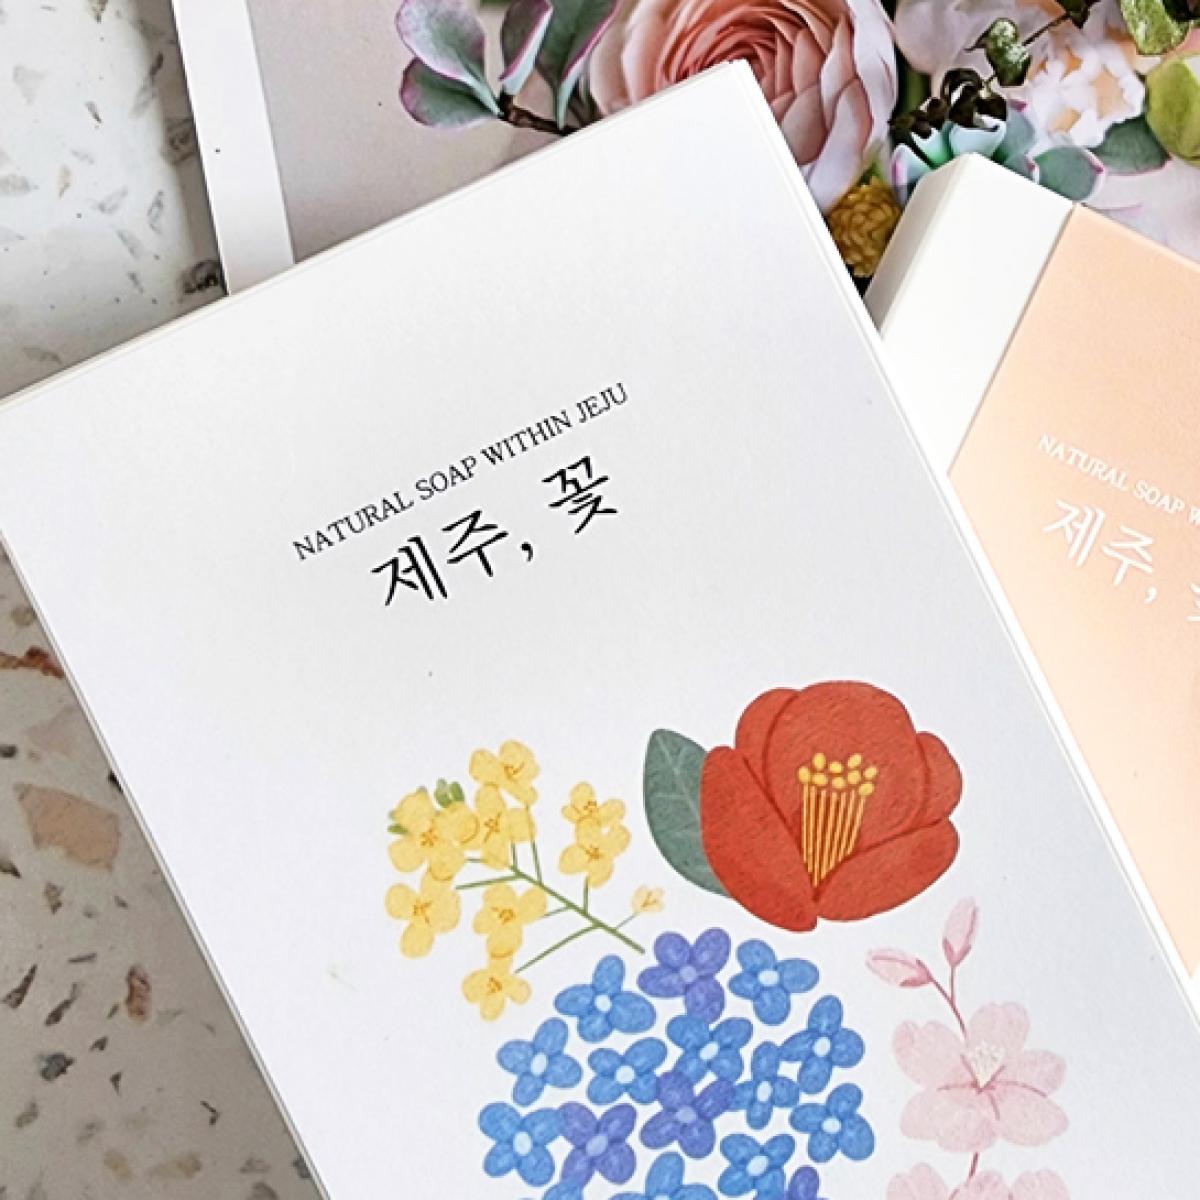 NATURAL SOAP WITHIN JEJU
제주, 꽃
NATURAL SOAP
제주,